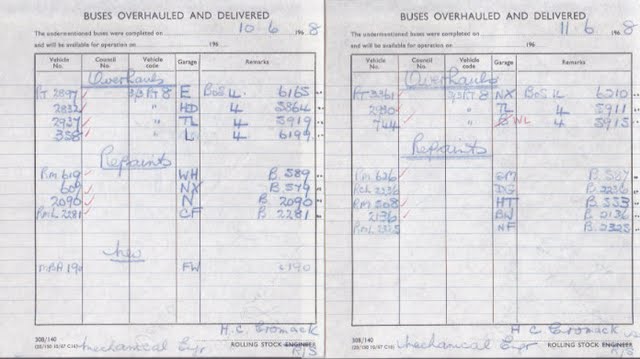 BUSES OVERHAULED AND DELIVERED
The undermentioned buses were completed on 10-6 1968
and will be available for operation on 196
Vehicle No. Council No. Vehicle code Garage Remarks
Overhauls
RT 2897 3/3RT8 E BoS IL 6165
2832 " HD 4 5864
2937 " TL 4 5919
358 " L 4 6199
Repaints
RM 619 WH B. 589
609 NX B. 579
2090 N B. 2090
RML 2281 CF B. 2281
New
MBA 190 FW 190
H. C. Cromack
308/140
Mechanical Engr
ROLLING STOCK ENGINEER
R/S
BUSES OVERHAULED AND DELIVERED
The undermentioned buses were completed on 11.6 1968
and will be available for operation on 196
Vehicle No. Council No. Vehicle code Garage Remarks
Overhauls
RT 3361 3/3RT8 NX BoS IL 6210
TL 4 5911
744 " WL 4 5915
Repaints
RM 626 SM B. 587
DG B. 2236
RM 508 HT B. 533
2136 BW B. 2136
RML 2325 NF B. 2325
H C Cromack
308/140
Mechanical Engr
ROLLING STOCK ENGINEER
R/S